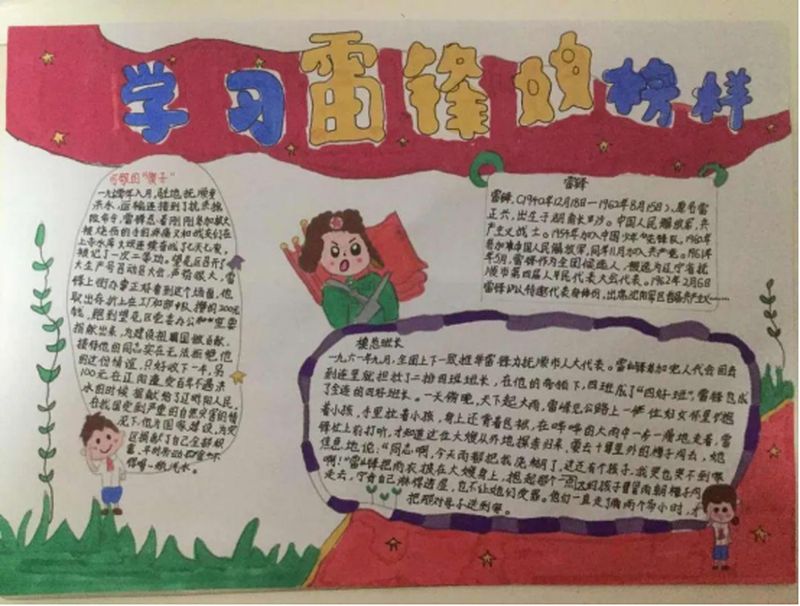 学习雷锋的榜样
可敬的"傻子"
一九六〇年八月,驻地抚顺发
洪水,运输连接到了抗洪抢
险命令,雷锋忍着刚刚参加救火
被烧伤的手的疼痛又和战友们在
上寺水库大坝连续奋战了七天七夜,
被记了一次二等功。望花区召开了
大生产号召动员大会,声势很大,雷
锋上街办事正好看到这个场面,他
取出存折上在工厂和部队攒的200元
钱,跑到望花区党委办公和
捐献出来,为建设祖国做贡献,
接待他的同志实在无法拒绝他
的这份情谊,只好收下一半。另
100元在辽阳遭受百年不遇洪
水的时候捐献给了辽阳人民。
在我国受到严重的自然灾害的情
况下,他为国家建设,为灾
区捐献了自己全部积
蓄,平时
得喝一瓶汽水。
雷锋
雷锋,(1940年12月18日—1962年8月15日),原名雷
正兴,出生于湖南长沙。中国人民解放军,共
产主义战士。1954年加入中国少年先锋队,1960年
参加中国人民解放军,同年11月加入共产党。1961年
5月,雷锋作为全团候选人,被选为辽宁省抚
顺市第四届人民代表大会代表。1962年2月6日
雷锋以特邀代表身份,出席沈阳军区首届共产主义……
模范班长
一九六一年九月,全团上下一致推举雷锋为抚顺市人大代表。雷锋参加完人代会回来
到连里就担任了二排四班班长,在他的带领下,四班成了"四好班",雷锋也成
了全连的四好班长。一天傍晚,天下起大雨,雷锋见公路上一位妇女怀里抱
着小孩,手里拉着小孩,身上还背着包袱,在哗哗的大雨中一步一滑地走着,雷
锋忙上前打听,才知道这位大嫂从外地探亲归来,要去十里外的樟子沟去,她
焦急地说:"同志啊,今天雨都把我浇糊了,这还有个孩子,我哭也哭不到家
啊!"雷锋把雨衣披在大嫂身上,抱起那个一点大的孩子冒着雨朝樟子沟
走去,宁肯自己淋得透湿,也不让她们受寒。他们一直走了两个多小时,才
把那对母子送到家。